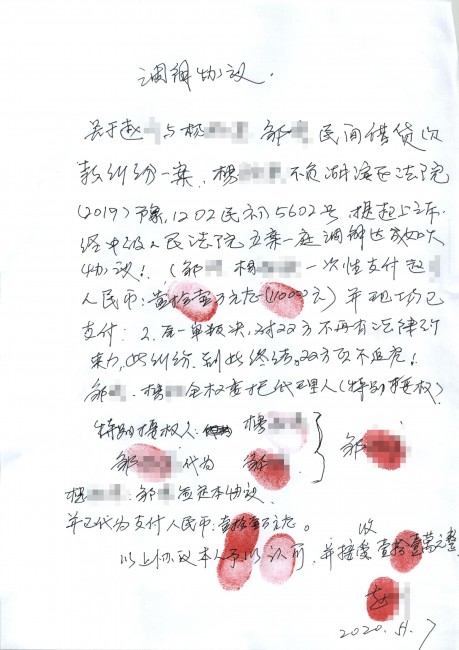 调解协议.
关于赵 与杨 邹 民间借贷
款纠纷一案、杨 不负湖滨区法院
(2019)豫,1202民初5602号,提起上诉.
经中级人民法院立案一庭调解达成如下
协议!(邹 杨 一次性支付赵
人民币:壹拾壹万元 (110000元) 并现场已
支付; 2.原一审判决,对双方不再有法律约
束力,此纠纷.到此终结,双方 不追究!
邹 、杨 全权委托代理人(特别授权)
特别授权人: 杨
邹 代为 邹 邹
杨 、邹 签定本协议.
并已代为支付人民币:壹拾壹万元。
以上协议本人予以认可,并接受 收 壹拾壹万元整
赵
2020. 7